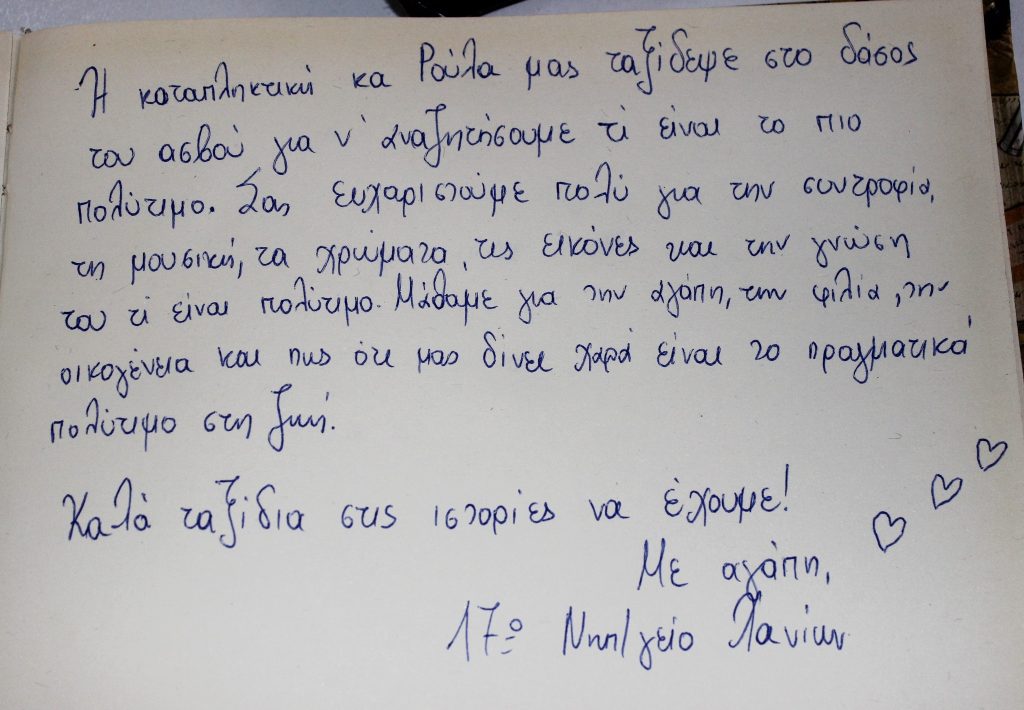 Η καταπληκτική κα Ρούλα μας ταξίδεψε στο δάσος
του ασβού για ν' αναζητήσουμε τι είναι το πιο
πολύτιμο. Σας ευχαριστούμε πολύ για την συντροφιά,
τη μουσική, τα χρώματα, τις εικόνες και την γνώση
του τι είναι πολύτιμο. Μάθαμε για την αγάπη, την φιλία, την
οικογένεια και πως ότι μας δίνει χαρά είναι το πραγματικά
πολύτιμο στη ζωή.
Καλά ταξίδια στις ιστορίες να έχουμε!
Με αγάπη,
17ο Νηπ/γείο Χανίων